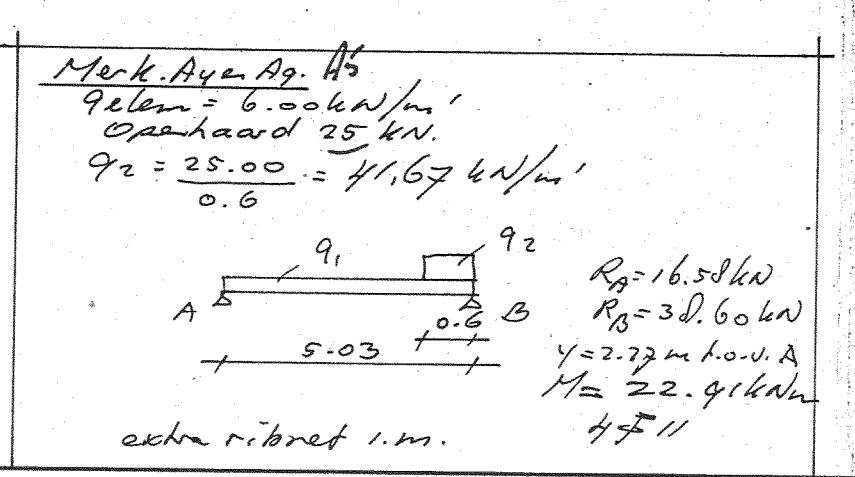 Merk. Ayen Ag. A's
qelem = 6.00 kN/m'
Openhaard 25 kN.
q2 = 25.00 / 0.6 = 41,67 kN/m'
q1
q2
A
B
0.6
5.03
RA = 16.58 kN
RB = 38.60 kN
y = 2.77 m t.o.v. A
M = 22.91 kNm
extra ribnet 1.m.